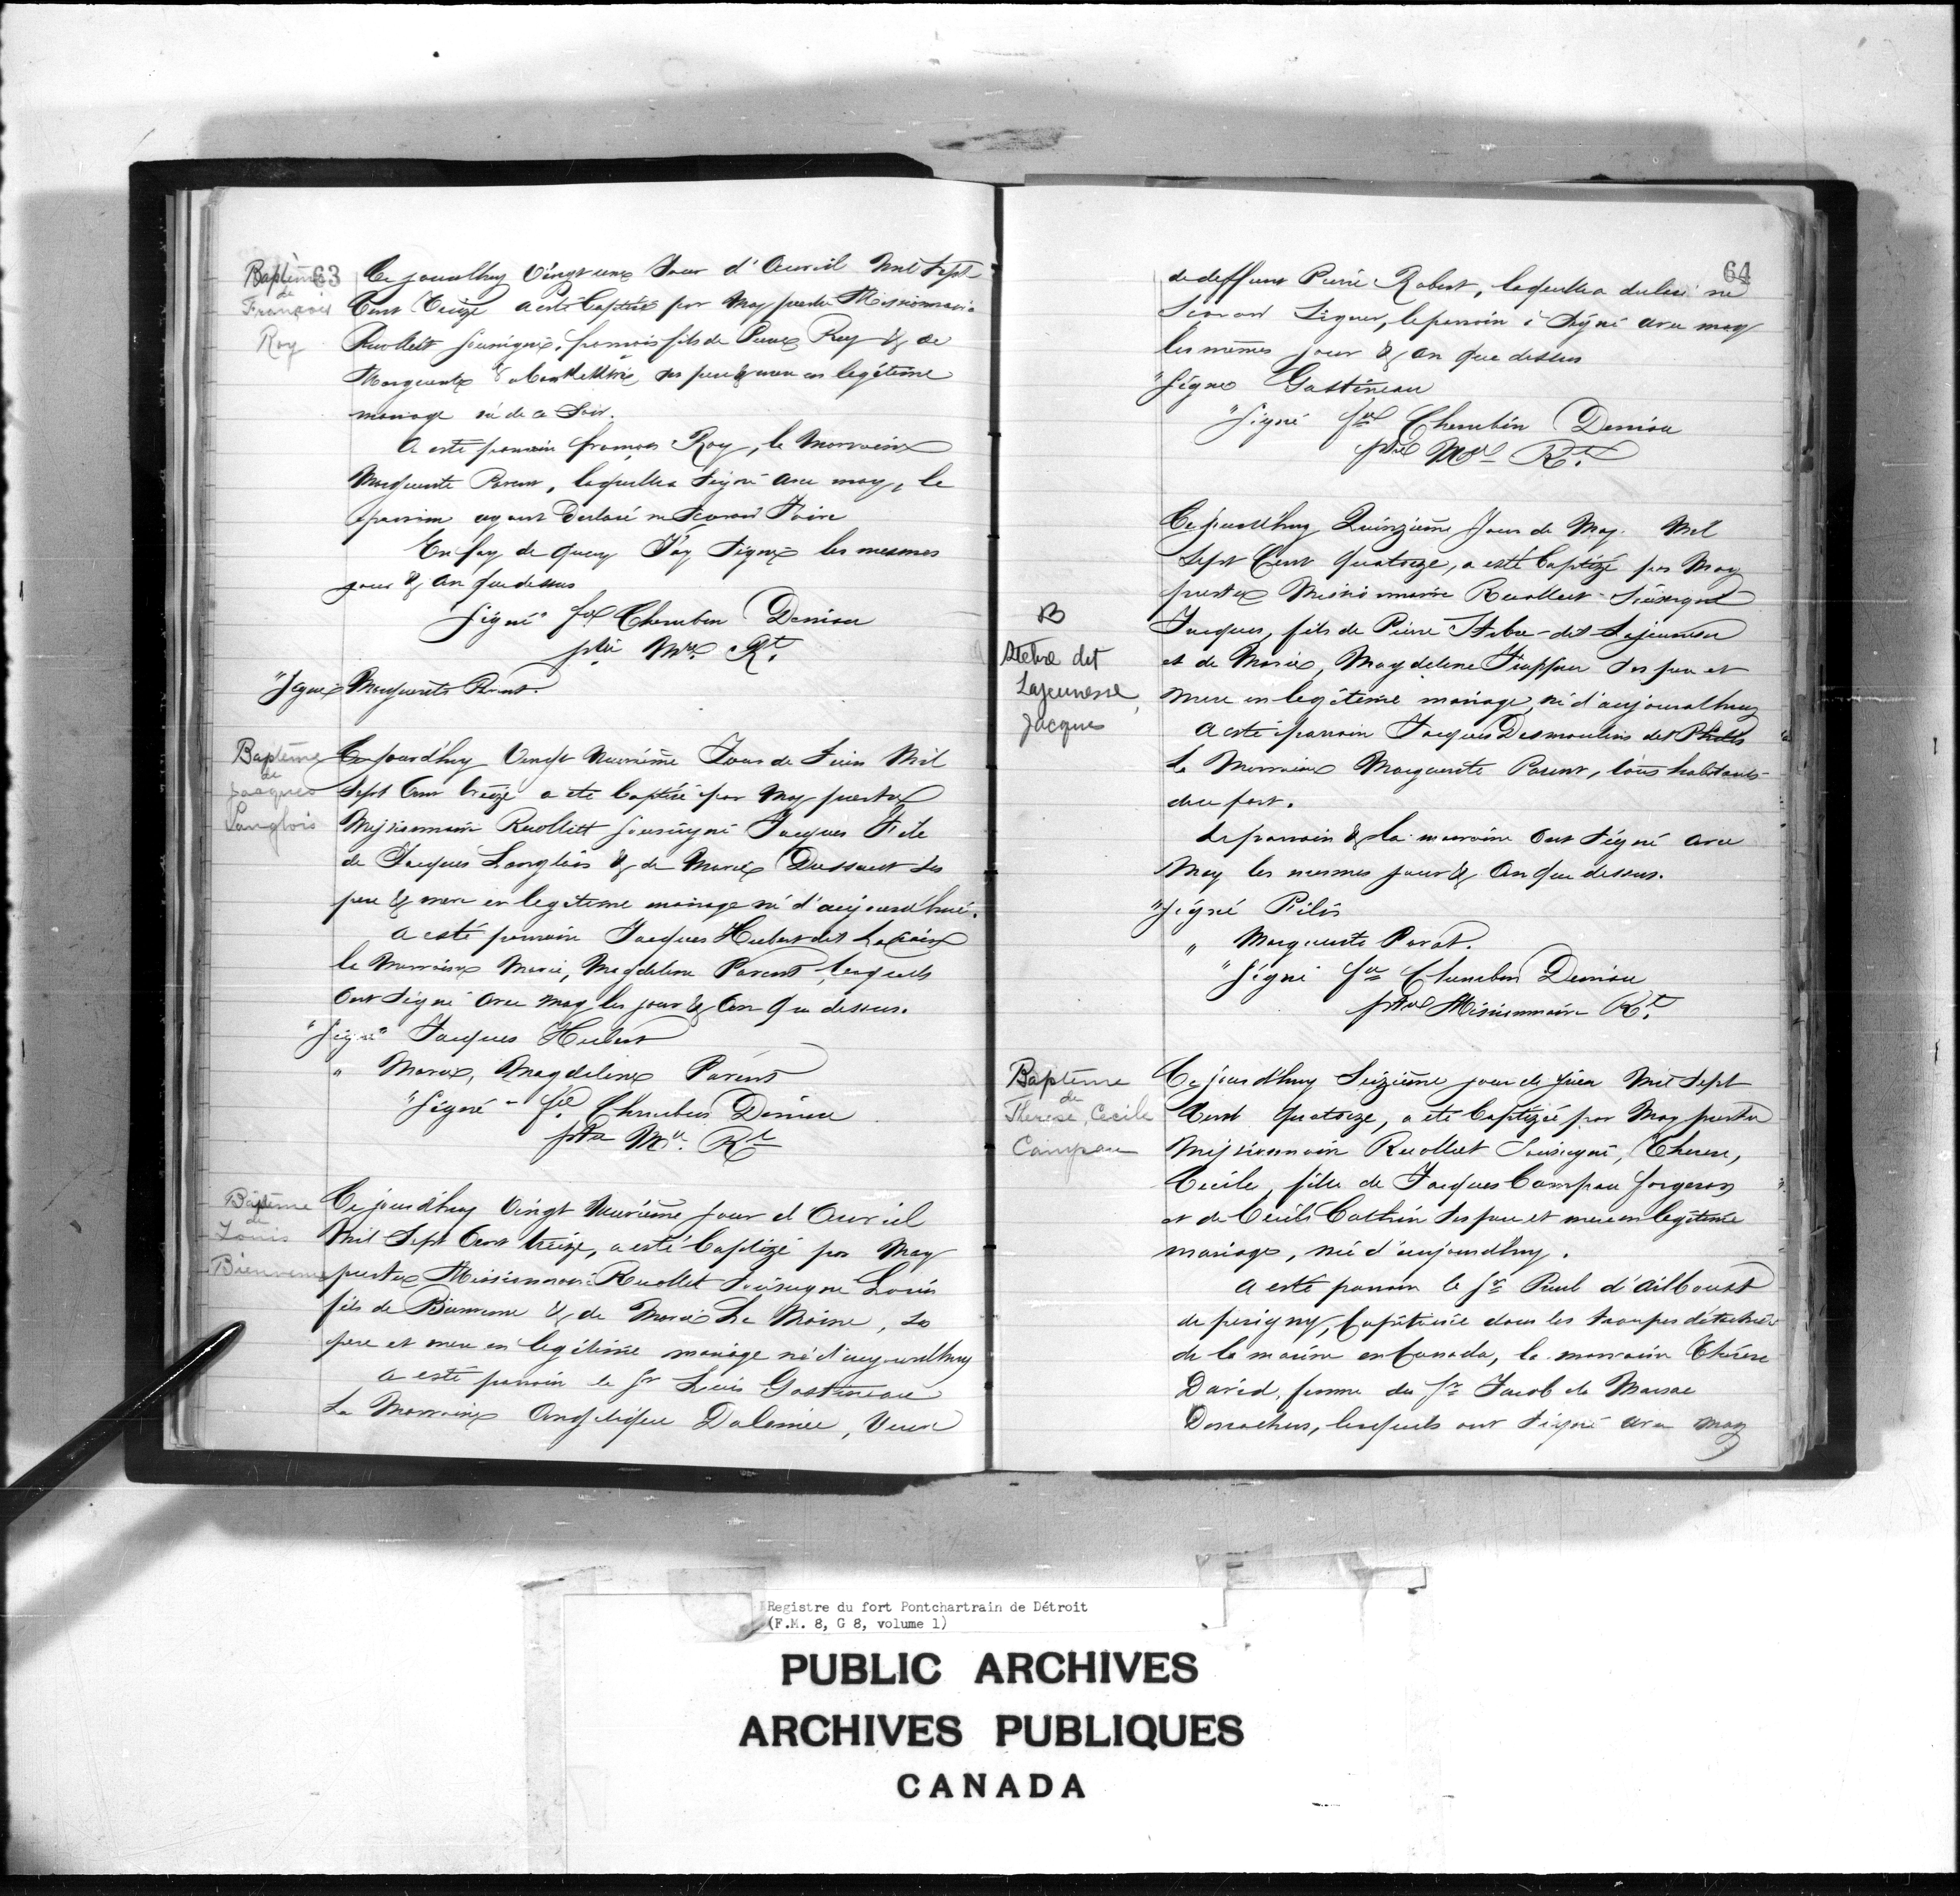 63
Baptème
de
François
Roy
Ce jourdhuy Vingt une Jour d'Auvril mil Sept
Cent treize a esté Baptisé par Moy prestre Missionnaire
Recollett sousigné, francois fils de Pierre Roy & de
Marguerite ses pere & mere en legiteme
mariage né de ce Soir.
A esté parrain francois Roy, la Marraine
Marguerite Parent, laquelle a signé avec moy, le
parrain ayant declaré ne scavoir faire
En foy de quoy J'ay Signé les mesmes
jour & an que dessus
Signé fre Cherubin Deniau
ptre Mre Rt.
"Signé Marguerite Parent.
Baptême
de
Jacques
Langlois
Ce jourd'huy Vingt Neuvième Jour de Juin Mil
Sept Cent treize a ete baptisé par Moy prestre
Missionnaire Recollett Sousigné Jacques Fils
de Jacques Langlois & de Marie Dussault ses
pere & mere en legiteme mariage né d'aujourdhui.
A esté parrain Jacques Hubert dit Lacroix
la Marraine Marie, Magdeline Parent, lesquels
ont signé avec moy les jour & an que dessus.
"Signé" Jacques Hubert
" Marie, Magdeline Parent
"Signé" fre Cherubin Deniau
ptre Mre. Rt
Baptême
de
Louis
Bienvenu
Ce jourd'huy Vingt Neuvième jour d'Auvriel
Mil Sept Cent treize, a esté baptizé par Moy
prestre Missionnaire Recollet Sousigné Louis
fils de Bienvenu & de Marie Le Moine, ses
pere et mere en legitimé mariage né d'aujourdhuy
A esté parrain le Sr Louis Gastineau
La Marraine Angelique Dalonnée, Veuve
64
de deffunt Pierre Robert, laquelle a declaré ne
scavoir Signer, le parrain a Signé avec moy
les mêmes jour & an que dessus
"Signé Gastineau
"Signé fre Cherubin Deniau
ptre Mre Rt.
B
Stebre dit
Lajeunesse,
Jacques
Ce jourd'huy Quinzième Jour de May Mil
Sept Cent Quatorze, a esté baptizé par Moy
prestre Missionnaire Recollect Sousigné
Jacques, fils de Pierre Stebre dit Lajeunesse
et de Marie, Magdelene Frappier ses pere et
mere en legiteme mariage, né d'aujourdhuy
A esté parrain Jacques Desmoulins dit Philis
La Marraine Marguerite Parent, tous habitants
du fort.
Le parrain & la marraine ont Signé avec
Moy les mesmes jour & an que dessus.
"Signé Pilis
" Marguerite Parat.
"Signé fre Cherubin Deniau
ptre Missionnaire Rt.
Baptême
de
Therese, Cecile
Campau
Ce jourd'huy Seizième jour de Juin Mil Sept
Cent Quatorze, a ete baptizée par Moy prestre
Missionnaire Recollect Sousigné, Therese,
Cecile, fille de Jacques Campau forgeron
et de Cecile Cathin ses pere et mere en legiteme
mariage, née d'aujourdhuy.
A esté parrain le Sr Paul d'ailboust
de perigny, Capitaine dans les troupes détachées
de la marine en Canada, la marraine Thérèse
David, femme du Sr Jacob de Marsac
Desrochers, lesquels ont signé avec moy
Registre du fort Pontchartrain de Détroit
(F.M. 8, G 8, volume 1)
PUBLIC ARCHIVES
ARCHIVES PUBLIQUES
CANADA